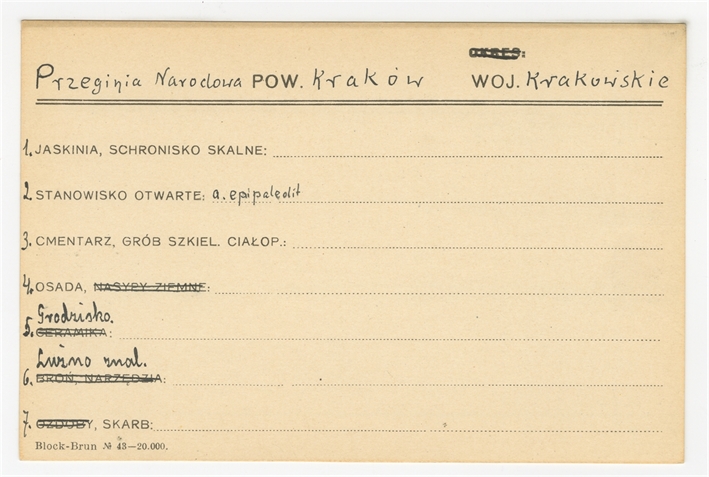 OKRES:
Przeginia Narodowa POW. Kraków WOJ. Krakowskie
1. JASKINIA, SCHRONISKO SKALNE:
2. STANOWISKO OTWARTE: a. epipaleolit
3. CMENTARZ, GRÓB SZKIEL. CIAŁOP.:
4. OSADA, NASYPY ZIEMNE:
Grodzisko.
5. CERAMIKA:
Luźno znal.
6. BROŃ, NARZĘDZIA:
7. OZDOBY, SKARB:
Block-Brun № 43—20.000.